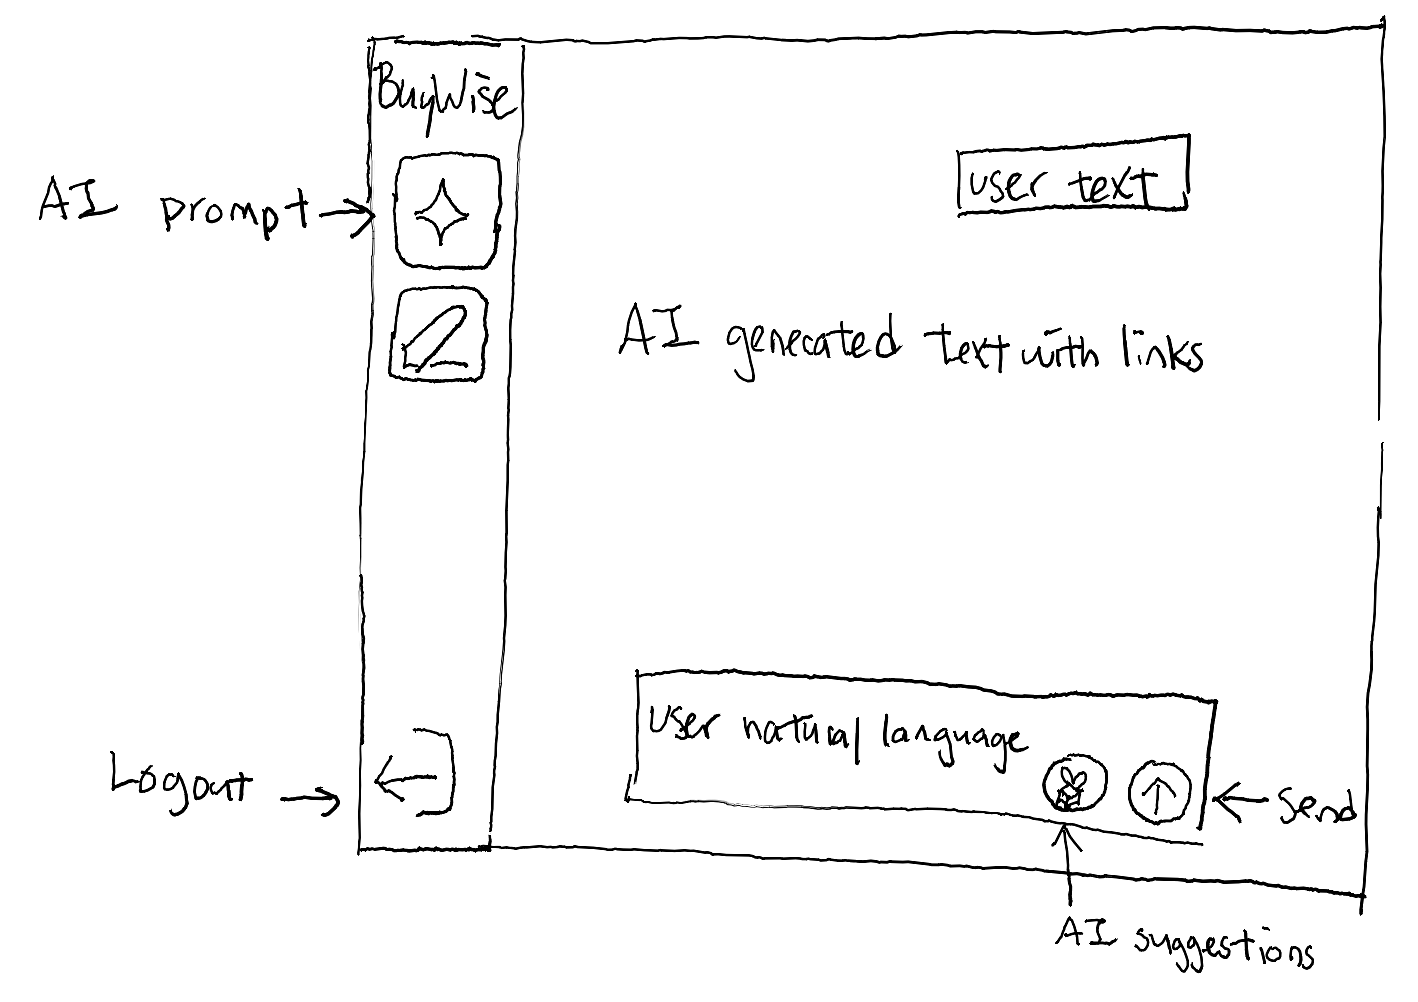 BuyWise
AI prompt
user text
AI generated text with links
user natural language
Logout
Send
AI suggestions